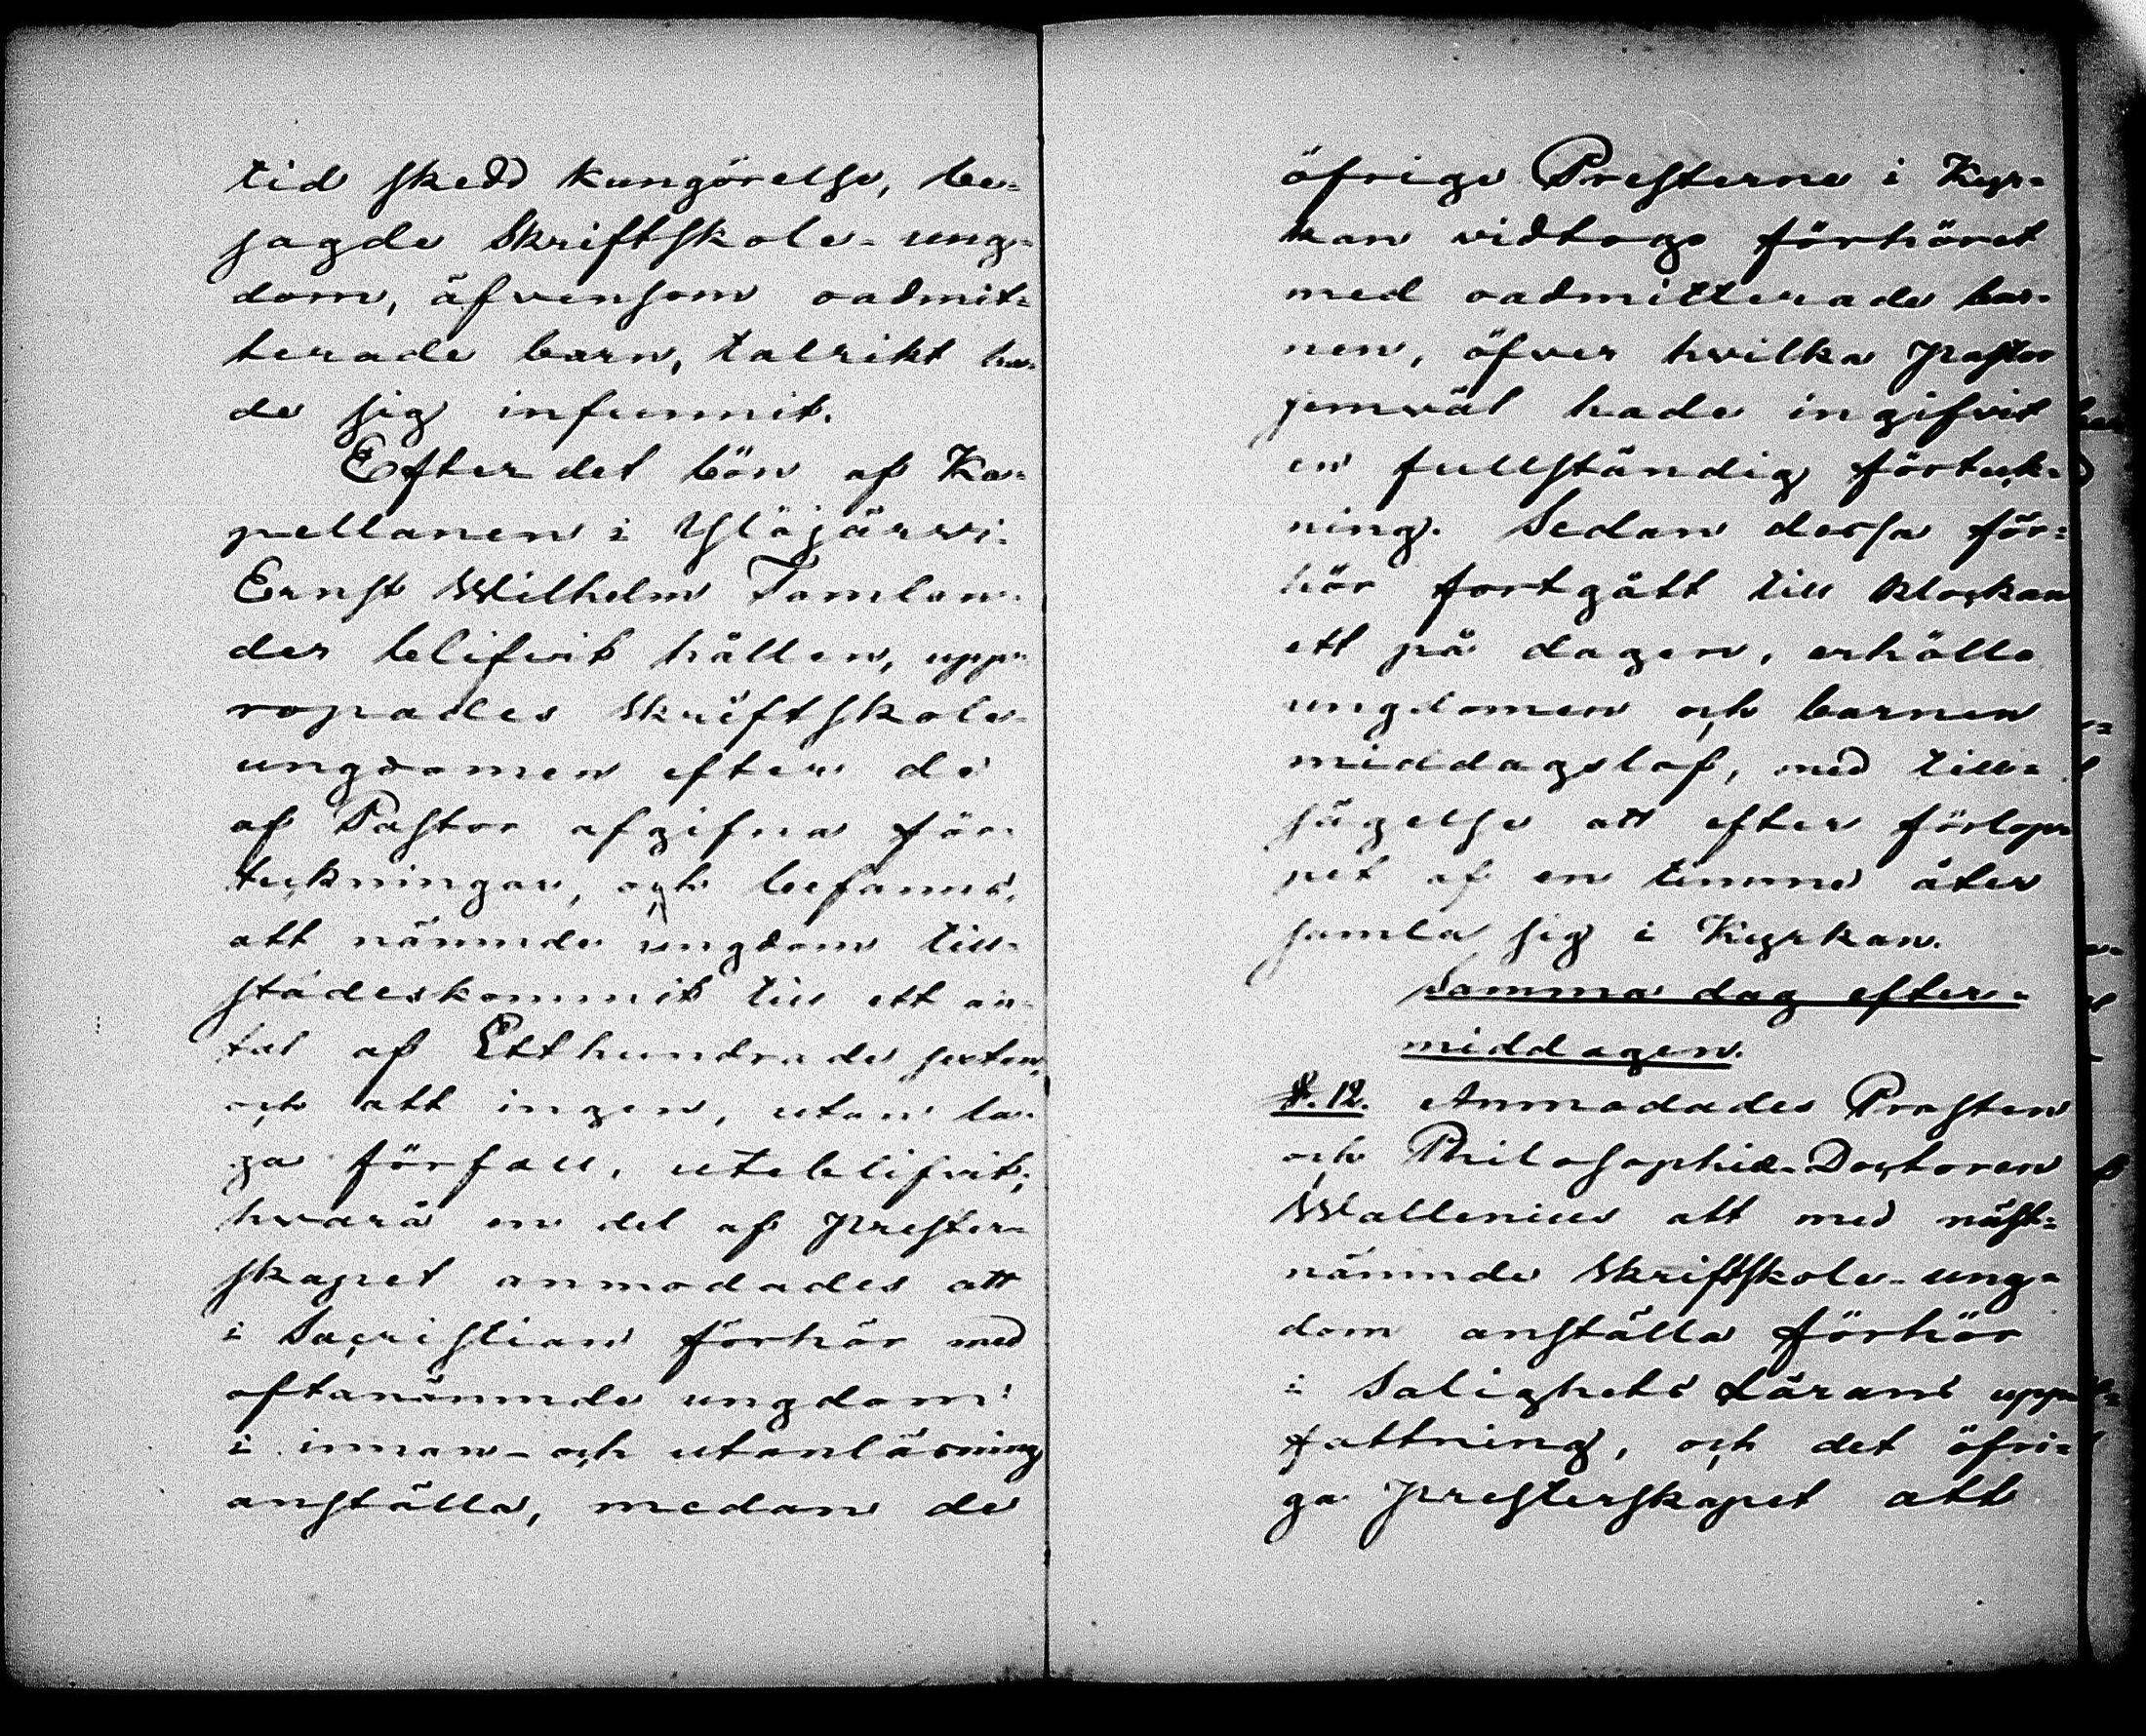 tid skedd kungörelse, be-
sagde Skriftskole-ung-
dom, äfvensom oadmit-
terade barn, talrikt ha-
de sig infunnit.
Efter det bön af Ka-
pellanen i Ylöjärvi
Ernst Wilhelm Tamlan-
der blifvit hållen, upp-
ropades Skriftskole-
ungdomen efter de
af Pastor afgifna för-
teckningar, och befanns,
att nämnde ungdom till-
städeskommit till ett an-
tal af Etthundrade sexton,
och att ingen, utan la-
ga förfall, uteblifvit;
hvarå en del af prester-
skapet anmodades att
i Sacristian förhör med
oftanämnde ungdom
i innan- och utanläsning
anställa, medan de
öfrige Presterne i Kyr-
kan vidtogo förhöret
med oadmitterade bar-
nen, öfver hvilka pastor
jemväl hade ingifvit
en fullständig förteck-
ning. Sedan dessa för-
hör fortgått till klockan
ett på dagen, erhöllo
ungdomen och barnen
middagslof, med till-
sägelse att efter förlop-
pet af en timme åter
samla sig i Kyrkan.
Samma dag efter-
middagen.
§. 12. Anmodades Prosten
och Philosophie-Doctoren
Wallenius att med näst-
nämnde Skriftskole-ung-
dom anställa förhör
i Salighets Lärans upp-
fattning, och det öfri-
ga presterskapet att